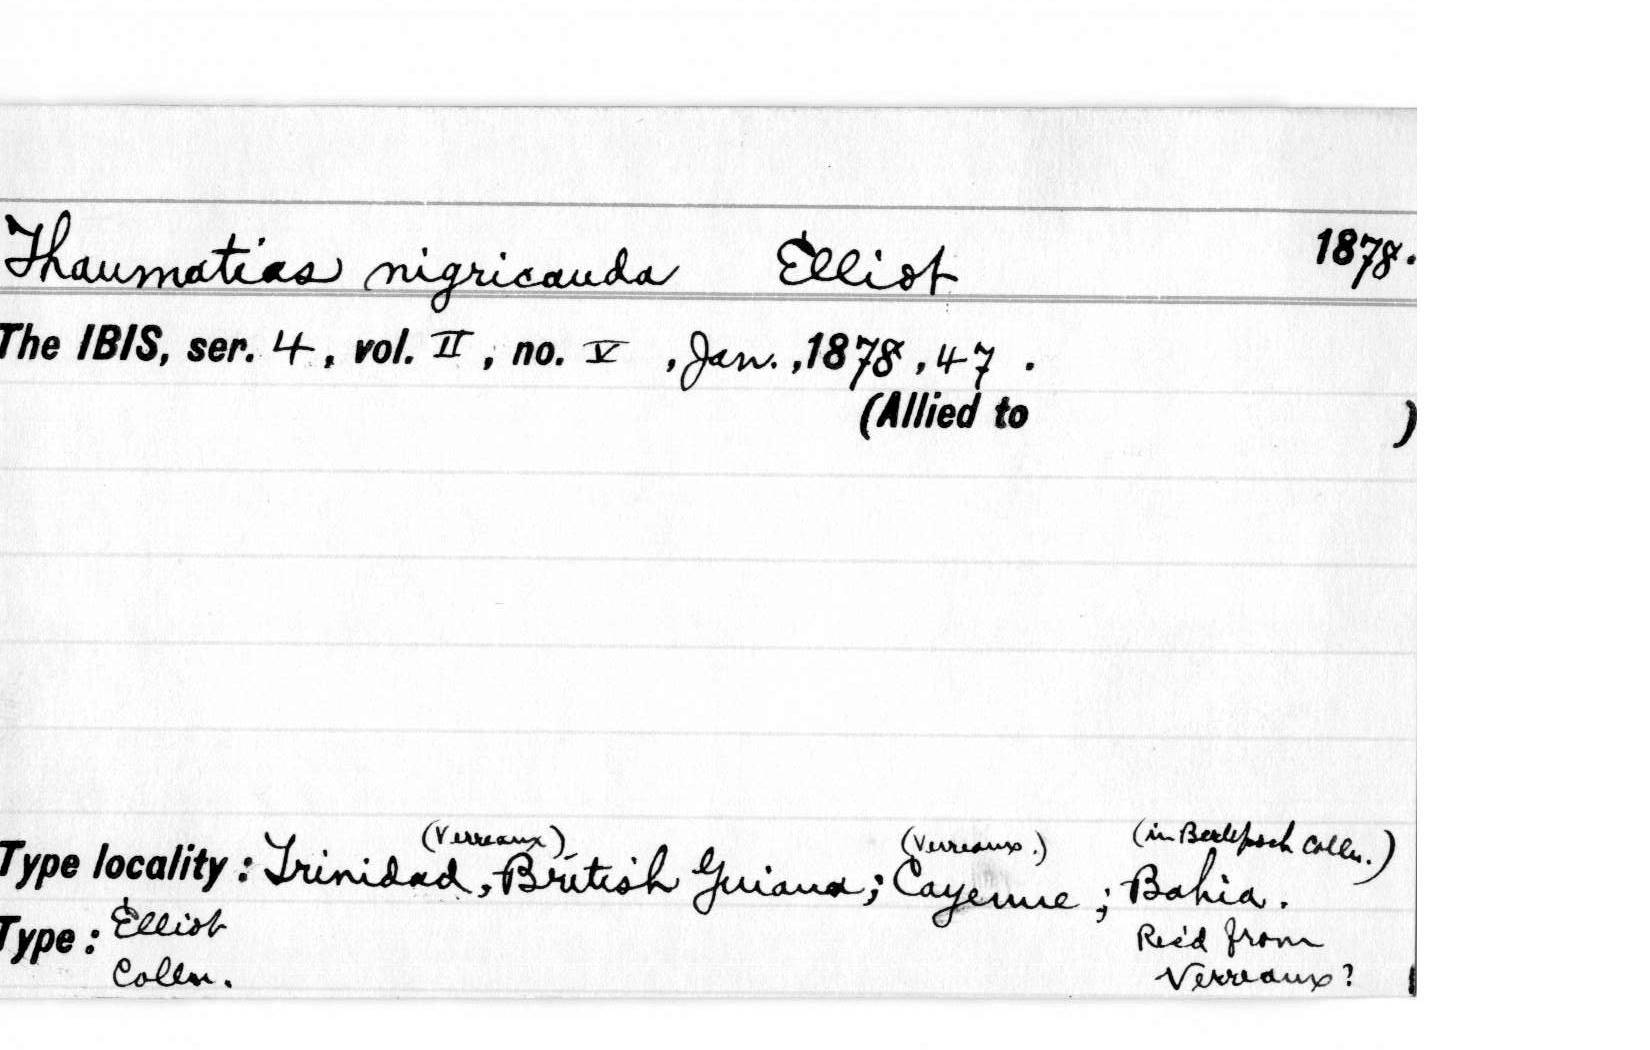 Thaumatias nigricauda Elliot 1878.
The IBIS, ser. 4, vol. II, no. V, Jan., 1878, 47.
(Allied to )
(Verreaux) (Verreaux.) (in Berlepsch Colln.)
Type locality: Trinidad, British Guiana; Cayenne; Bahia.
Type: Elliot Rec'd from
Colln. Verreaux?